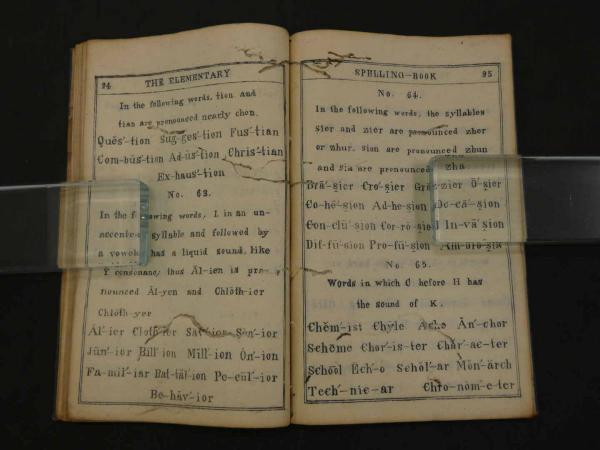 94 THE ELEMENTARY
In the following words, tion, and
tian are pronounced nearly chon.
Quĕs´-tion Sug-ges´-tion Fus´-tian
Com-bŭs´-tion Ad-ŭs´-tion Chris´-tian
Ex-haus´-tion
No. 63.
In the following words, I, in an un-
accented syllable and followed by
a vowel, has a liquid sound, like
Y consonant; thus Āl-ien is pro-
nounced Āl-yen and Clōth-ier
Clōth-yer
Āl´-ier Cloth´-ier Sav´-ior Sēn´-ior
Jūn´-ior Bill´-ion Mill´-ion Ŏn´-ion
Fa-mil´-iar Bat-tăl´-ion Pe-cūl´-iar
Be-hāv´-ior
SPELLING-BOOK 95
No. 64.
In the following words, the syllables
sier and zier are pronounced zher
or zhur, sion are pronounced zhun
and sia are pronounced zha
Brā´-sier Cro´-sier Grā´-zier Ō´-sier
Co-hē´-sion Ad-he-sion De-cā´-sion
Con-clū´-sion Cor-ro-sion In-vā´-sion
Dif-fū´-sion Pro-fū´-sion Am-bro-sia
No. 65.
Words in which C before H has
the sound of K.
Chĕm´-ist Chyle Ache Ăn´-chor
Scheme Chor´-is-ter Chăr´-ac-ter
School Ech´-o Schŏl´-ar Mŏn´-ärch
Tech´-nic-ar Chro-nŏm´-e-ter